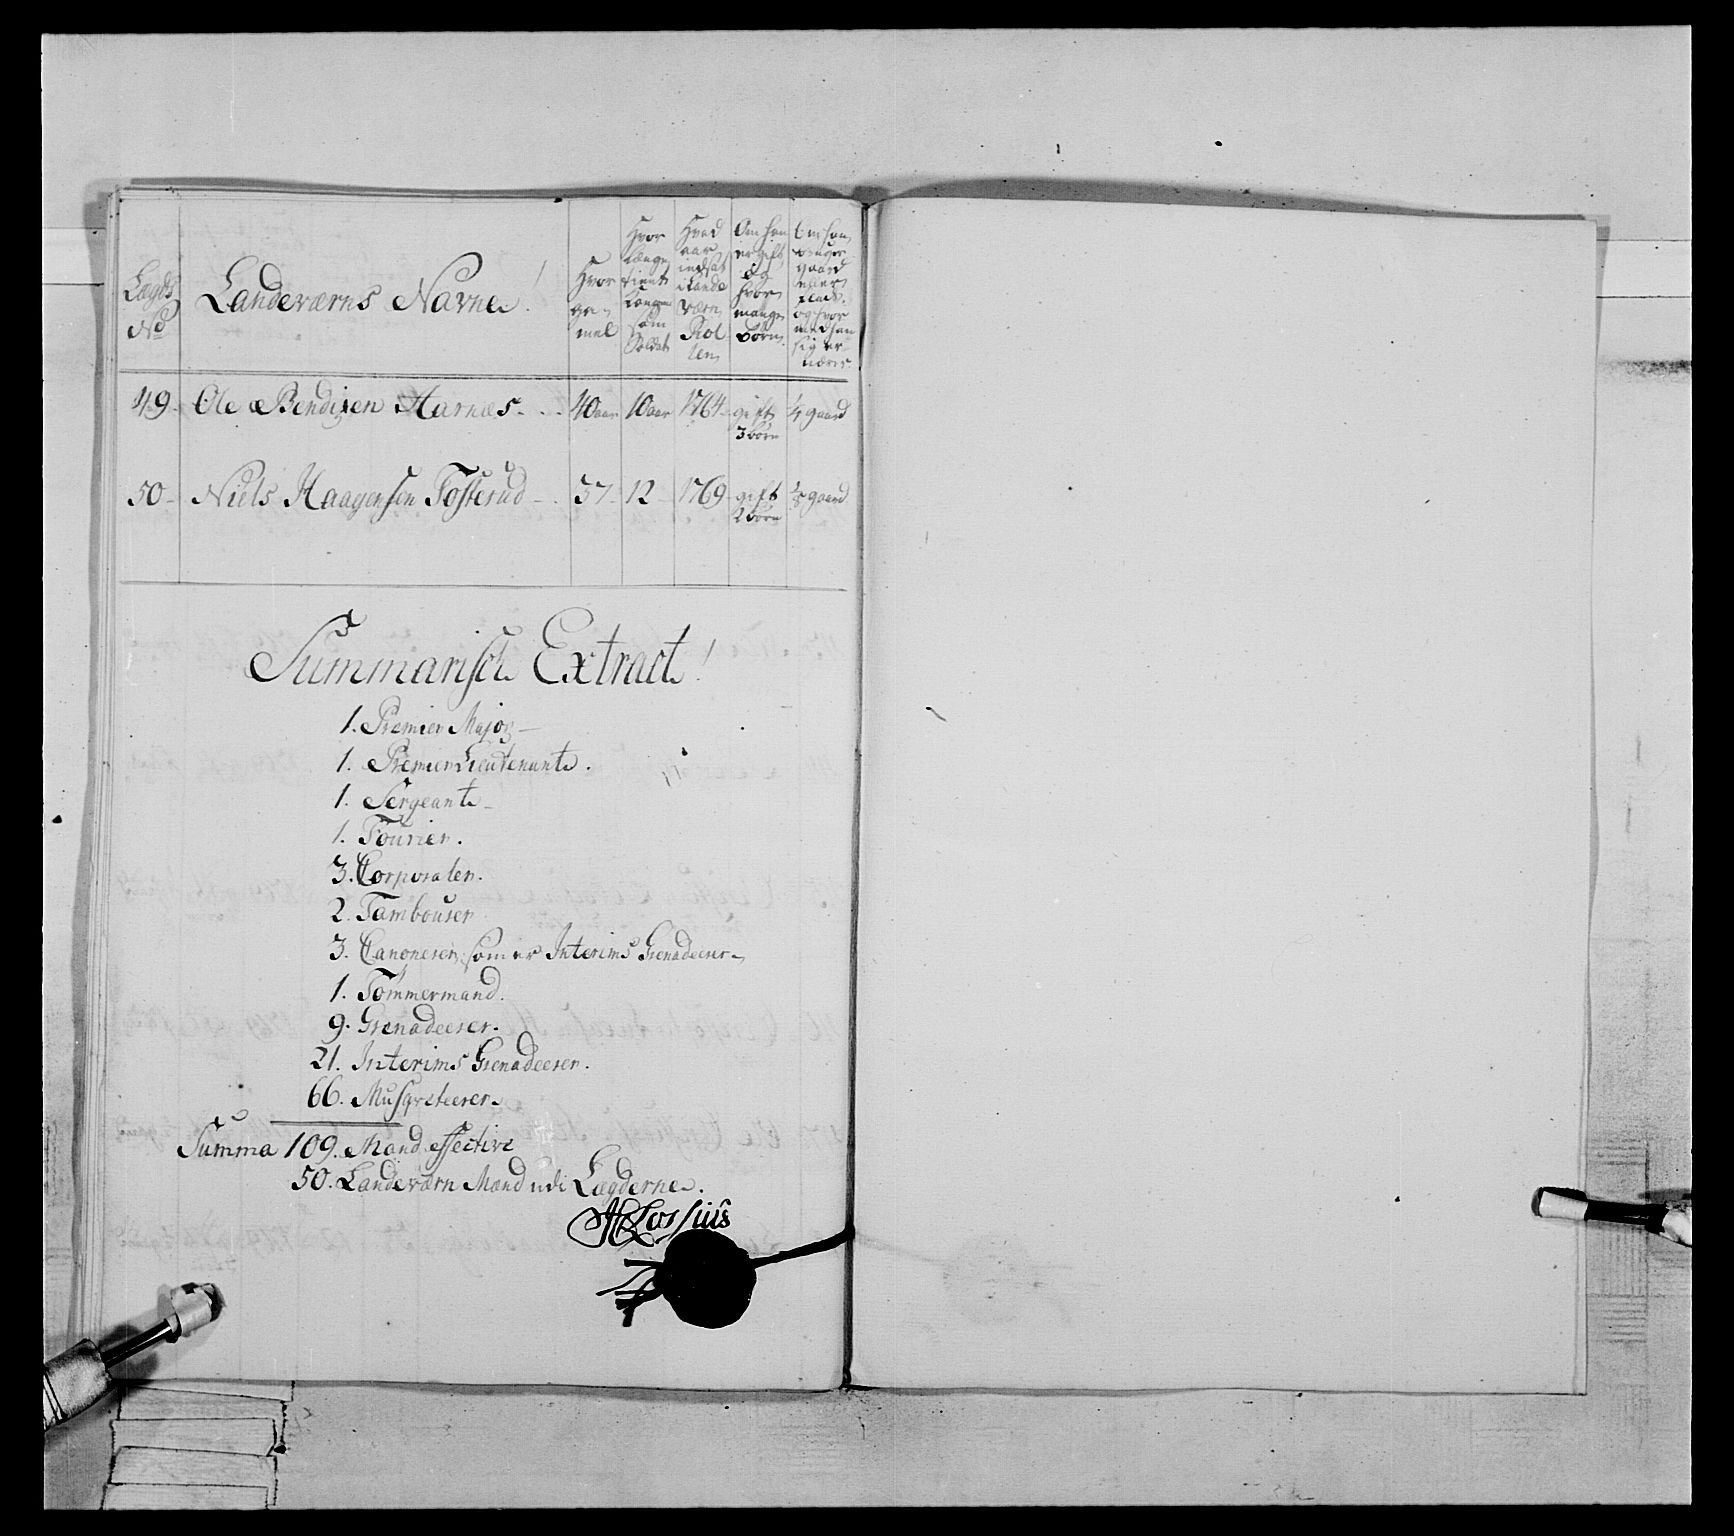 Lægds No
Landeværns Navne!
Hvor gamel
Hvor længe tient Kongen som Soldat
Hvad aar indsat i Lande Værn Rollen
Om han er gift, og hvor mange børn
Om han bruger gaard eller plads. og hvor med han sig er nærer
49 Ole Bendixen Harnæs 40 aar 10 aar 1764 gift 3 børn 1/4 gaard
50 Niels Haagensen Fosterud 37 12 1769 gift 2 børn gaard
Summarisch Extract!
1. Premier Major
1. Premier Lieutenant.
1. Sergeant
1. Fourier.
3. Corporaler.
2. Tambouser
3. Canonerer, som er Interims Grenadeerer
1. Tømmermand.
9. Grenadeerer.
21. Interims Grenadeerer.
66. Musqveteerer
Summa 109. Mand effective
50. Landeværn Mænd udi Lægderne.